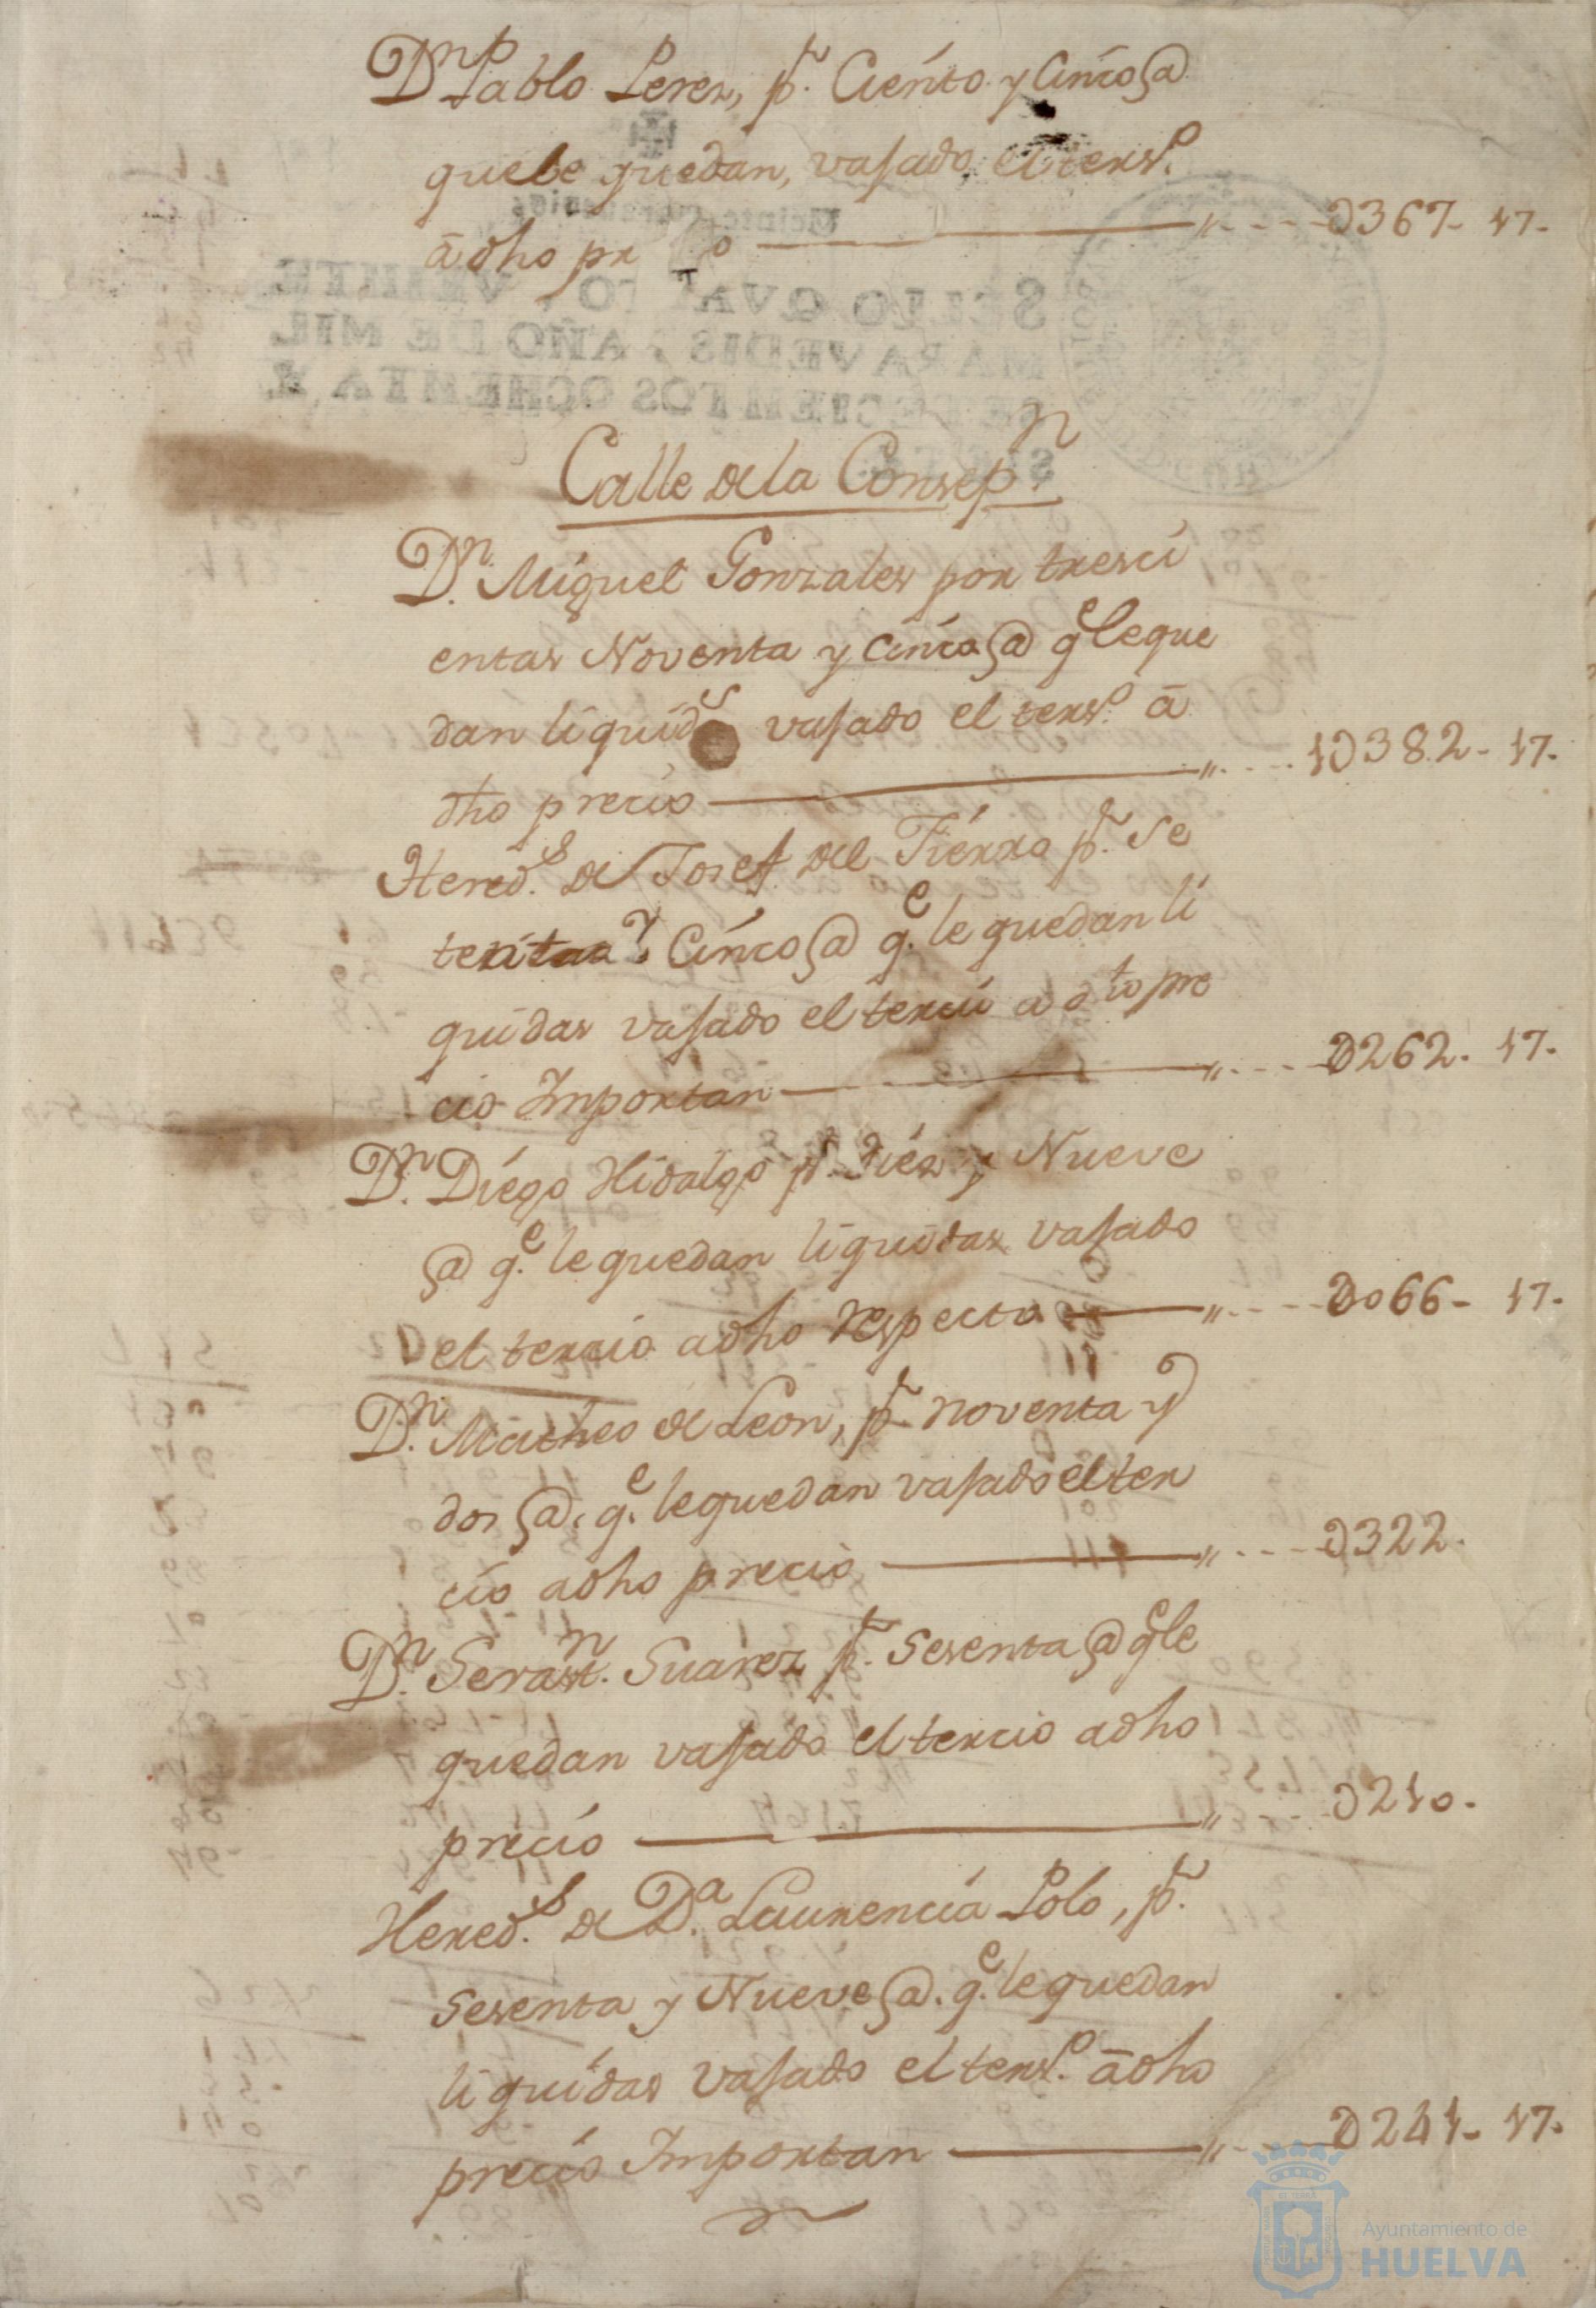 Dn Pablo Perez, pr. Ciento y Cinco @
quele quedan, vajado el terso.
â dho pr o ———— " - - - D367- 17-
Calle dela Consepn.
Dn. Miguel Gonzales por tresci
entas Noventa y cinco @ qe leque
dan liquids vajado el terso. â
dho precio ———— " - - - 1D382- 17.
Hereds. de Josef del Fierro pr. Se
tenta y Cinco @ qe. le quedan li
quidas vajado el tercio a dho pre
cio Importan ———— " - - - D262. 17.
Dn. Diego Hidalgo pr. Diez y Nueve
@ qe. le quedan liquidas vajado
el tercio adho respecto ———— " - - - D066- 17.
Dn. Matheo de Leon, pr. noventa y
dos @. qe. lequedan vajado el ter
cio adho precio ———— " - - - D322.
Dn. Sevastn. Suarez pr. Sesenta @ qe le
quedan vajado el tercio adho
precio ———— " - - - D210.
Hereds. de Da. Laurencia Polo, pr.
Sesenta y Nueve @. qe. le quedan
liquidas vajado el terso. âdho
precio Importan ———— " - - - D241- 17.
Ayuntamiento de
HUELVA